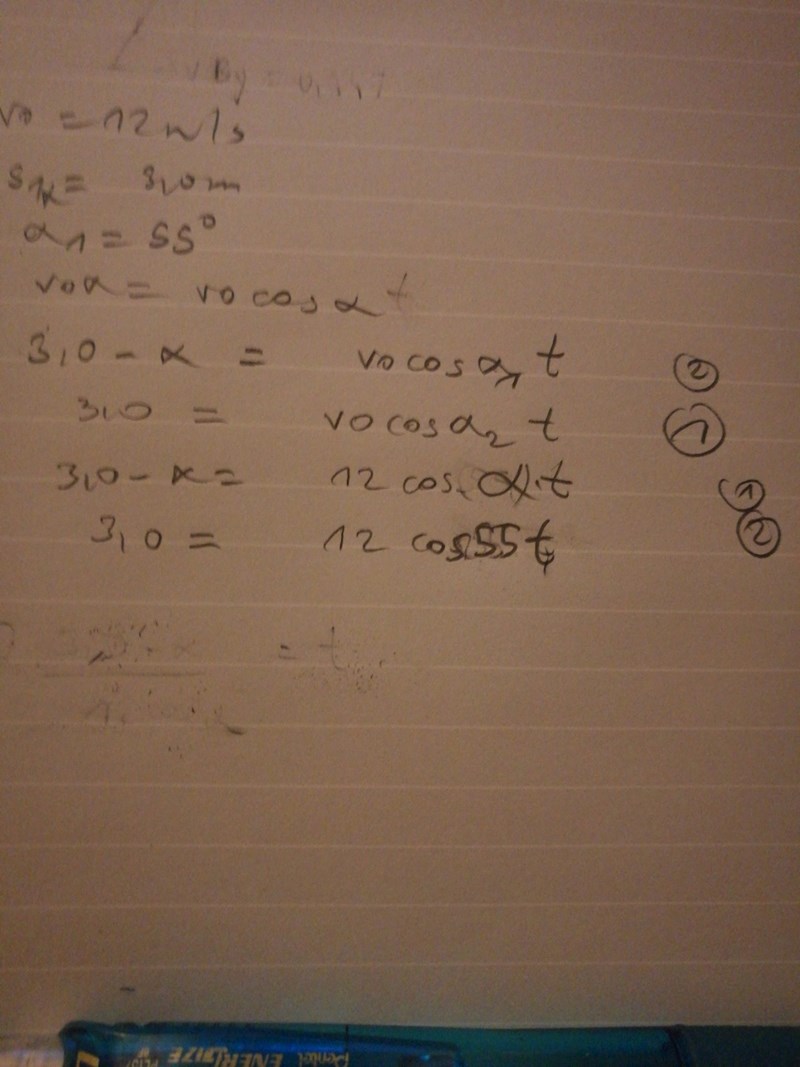 VBy = 0,447
v0 = 12 m/s
s1x = 3,0 m
α1 = 55°
v0x = v0 cos α t
3,0 - x = v0 cos α1 t ②
3,0 = v0 cos α2 t ①
3,0 - x = 12 cos α1 · t ①
3,0 = 12 cos 55 t ②
= t
Pentel ENERGIZE